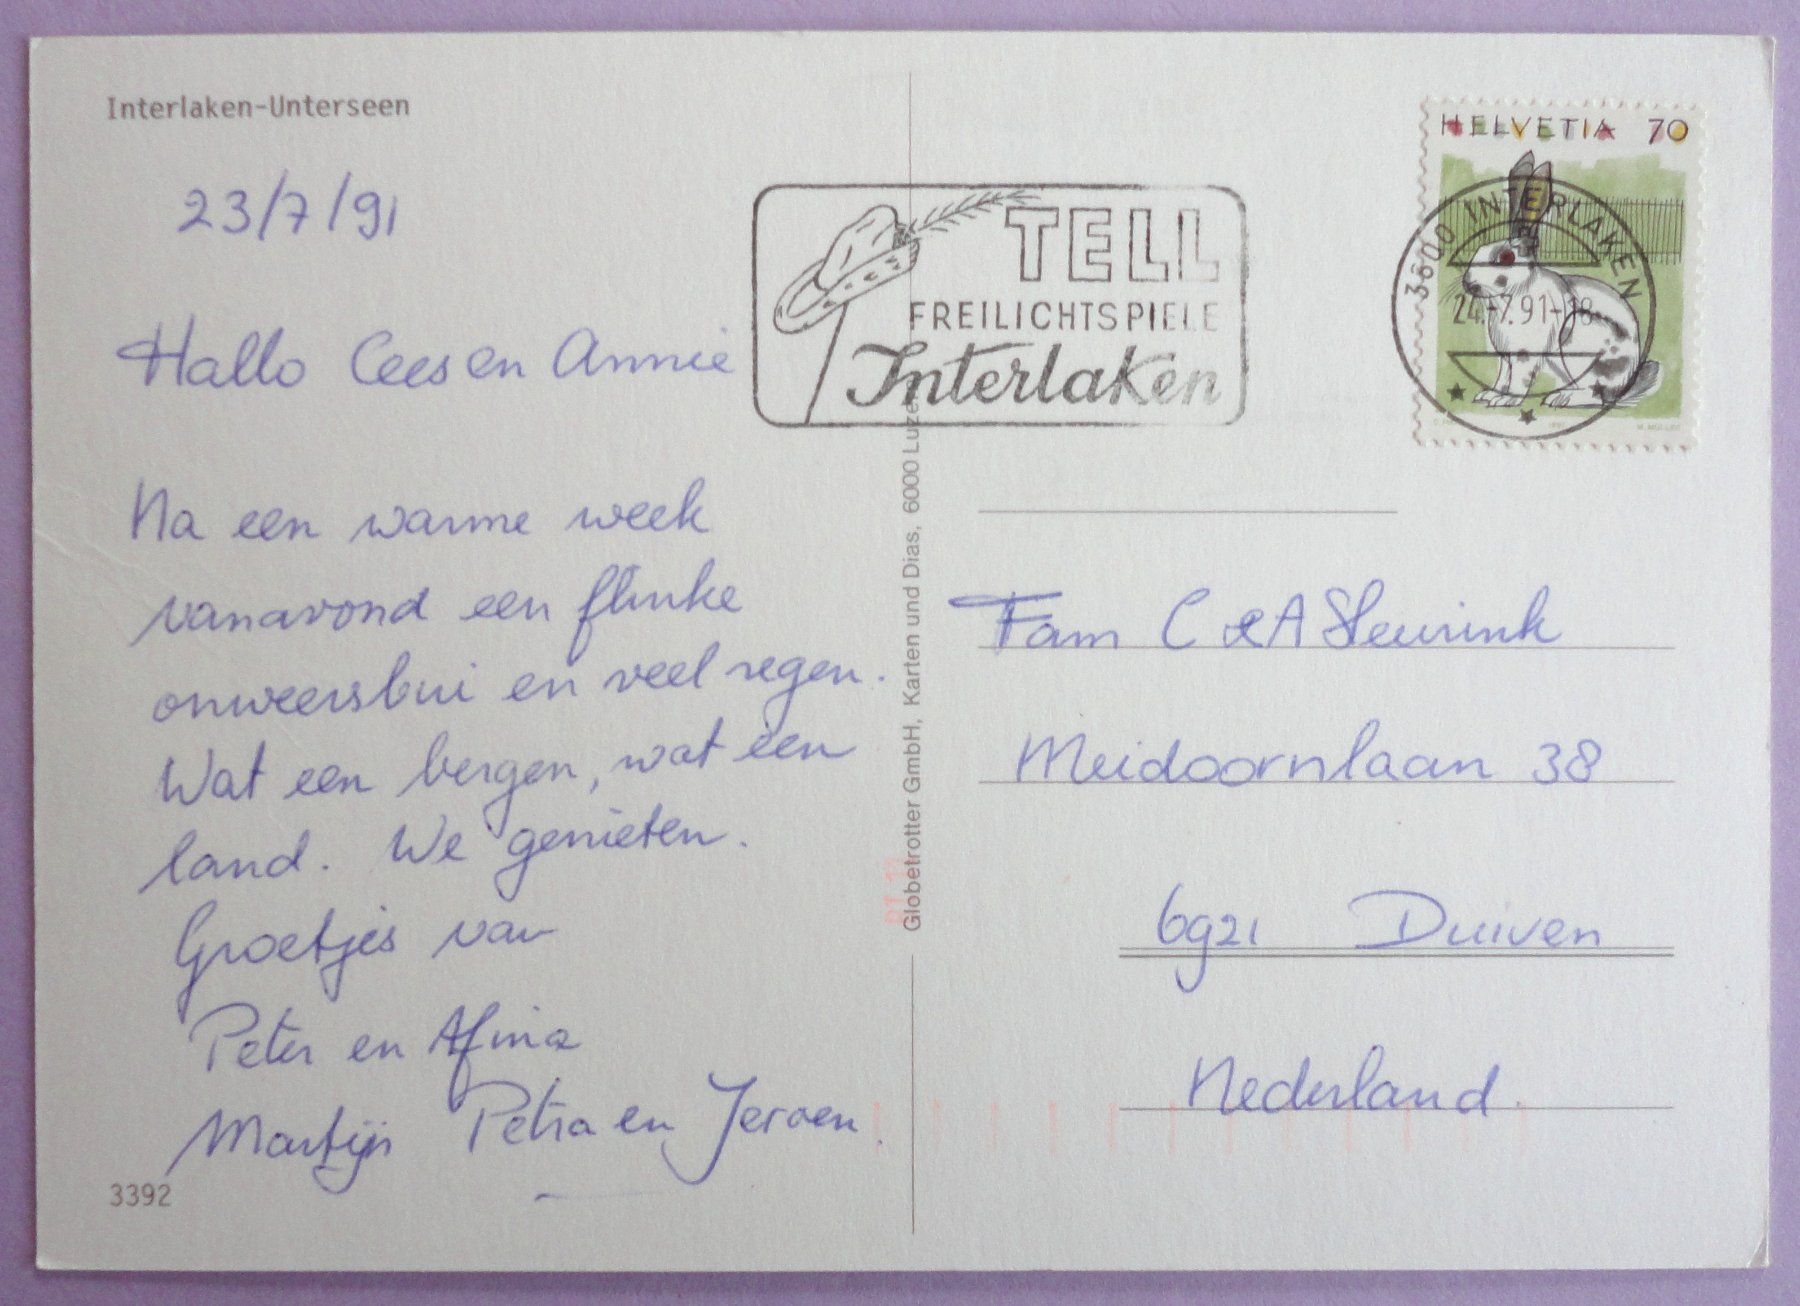 Interlaken-Unterseen
23/7/91
Hallo Cees en Annie
Na een warme week
vanavond een flinke
onweersbui en veel regen.
Wat een bergen, wat een
land. We genieten.
Groetjes van
Peter en Afina
Martijn Petra en Jeroen.
3392
Globetrotter GmbH, Karten und Dias, 6000 Luzern
TELL
FREILICHTSPIELE
Interlaken
HELVETIA 70
3800 INTERLAKEN
24.-7.91-18
Fam C & A
Meidoornlaan 38
6921 Duiven
Nederland